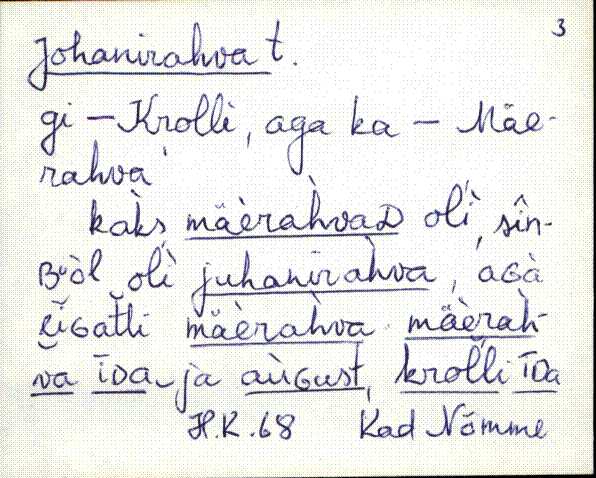 3
Johanirahva t.
gi – Krolli, aga ka – Mäe-
rahva
kàks mäèrahvaD olì, sîn-
Bùòl olì juhanirahva, aGà
mäèrahva mäèrah-
va īDa ja aùGust, krolli īDa
H.K. 68 Kad Nõmme